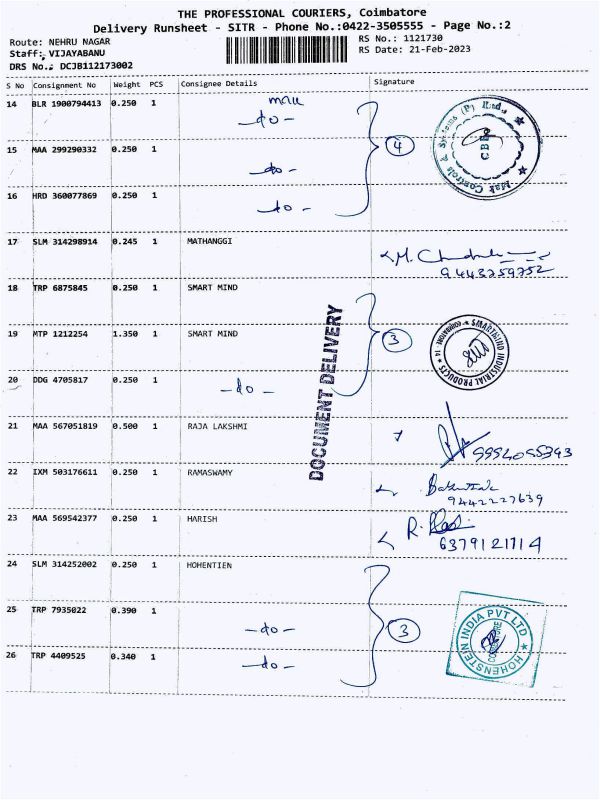 THE PROFESSIONAL COURIERS, Coimbatore
Delivery Runsheet - SITR - Phone No.:0422-3505555 - Page No.:2
Route: NEHRU NAGAR
RS No.: 1121730
Staff: VIJAYABANU
RS Date: 21-Feb-2023
DRS No.: DCJB112173002
S No Consignment No Weight PCS Consignee Details Signature
14 BLR 1900794413 0.250 1 -do-
15 MAA 299290332 0.250 1 -do- 4
16 HRD 360077869 0.250 1 -do-
17 SLM 314298914 0.245 1 MATHANGGI
9443759752
18 TRP 6875845 0.250 1 SMART MIND
19 MTP 1212254 1.350 1 SMART MIND 3
SMARTMIND INDUSTRIAL PRODUCTS
20 DDG 4705817 0.250 1 -do-
DOCUMENT DELIVERY
21 MAA 567051819 0.500 1 RAJA LAKSHMI
22 IXM 503176611 0.250 1 RAMASWAMY
9442227639
23 MAA 569542377 0.250 1 HARISH
6379121714
24 SLM 314252002 0.250 1 HOHENTIEN
25 TRP 7935022 0.390 1 -do- 3
HOHENSTEIN INDIA PVT LTD
26 TRP 4409525 0.340 1 -do-